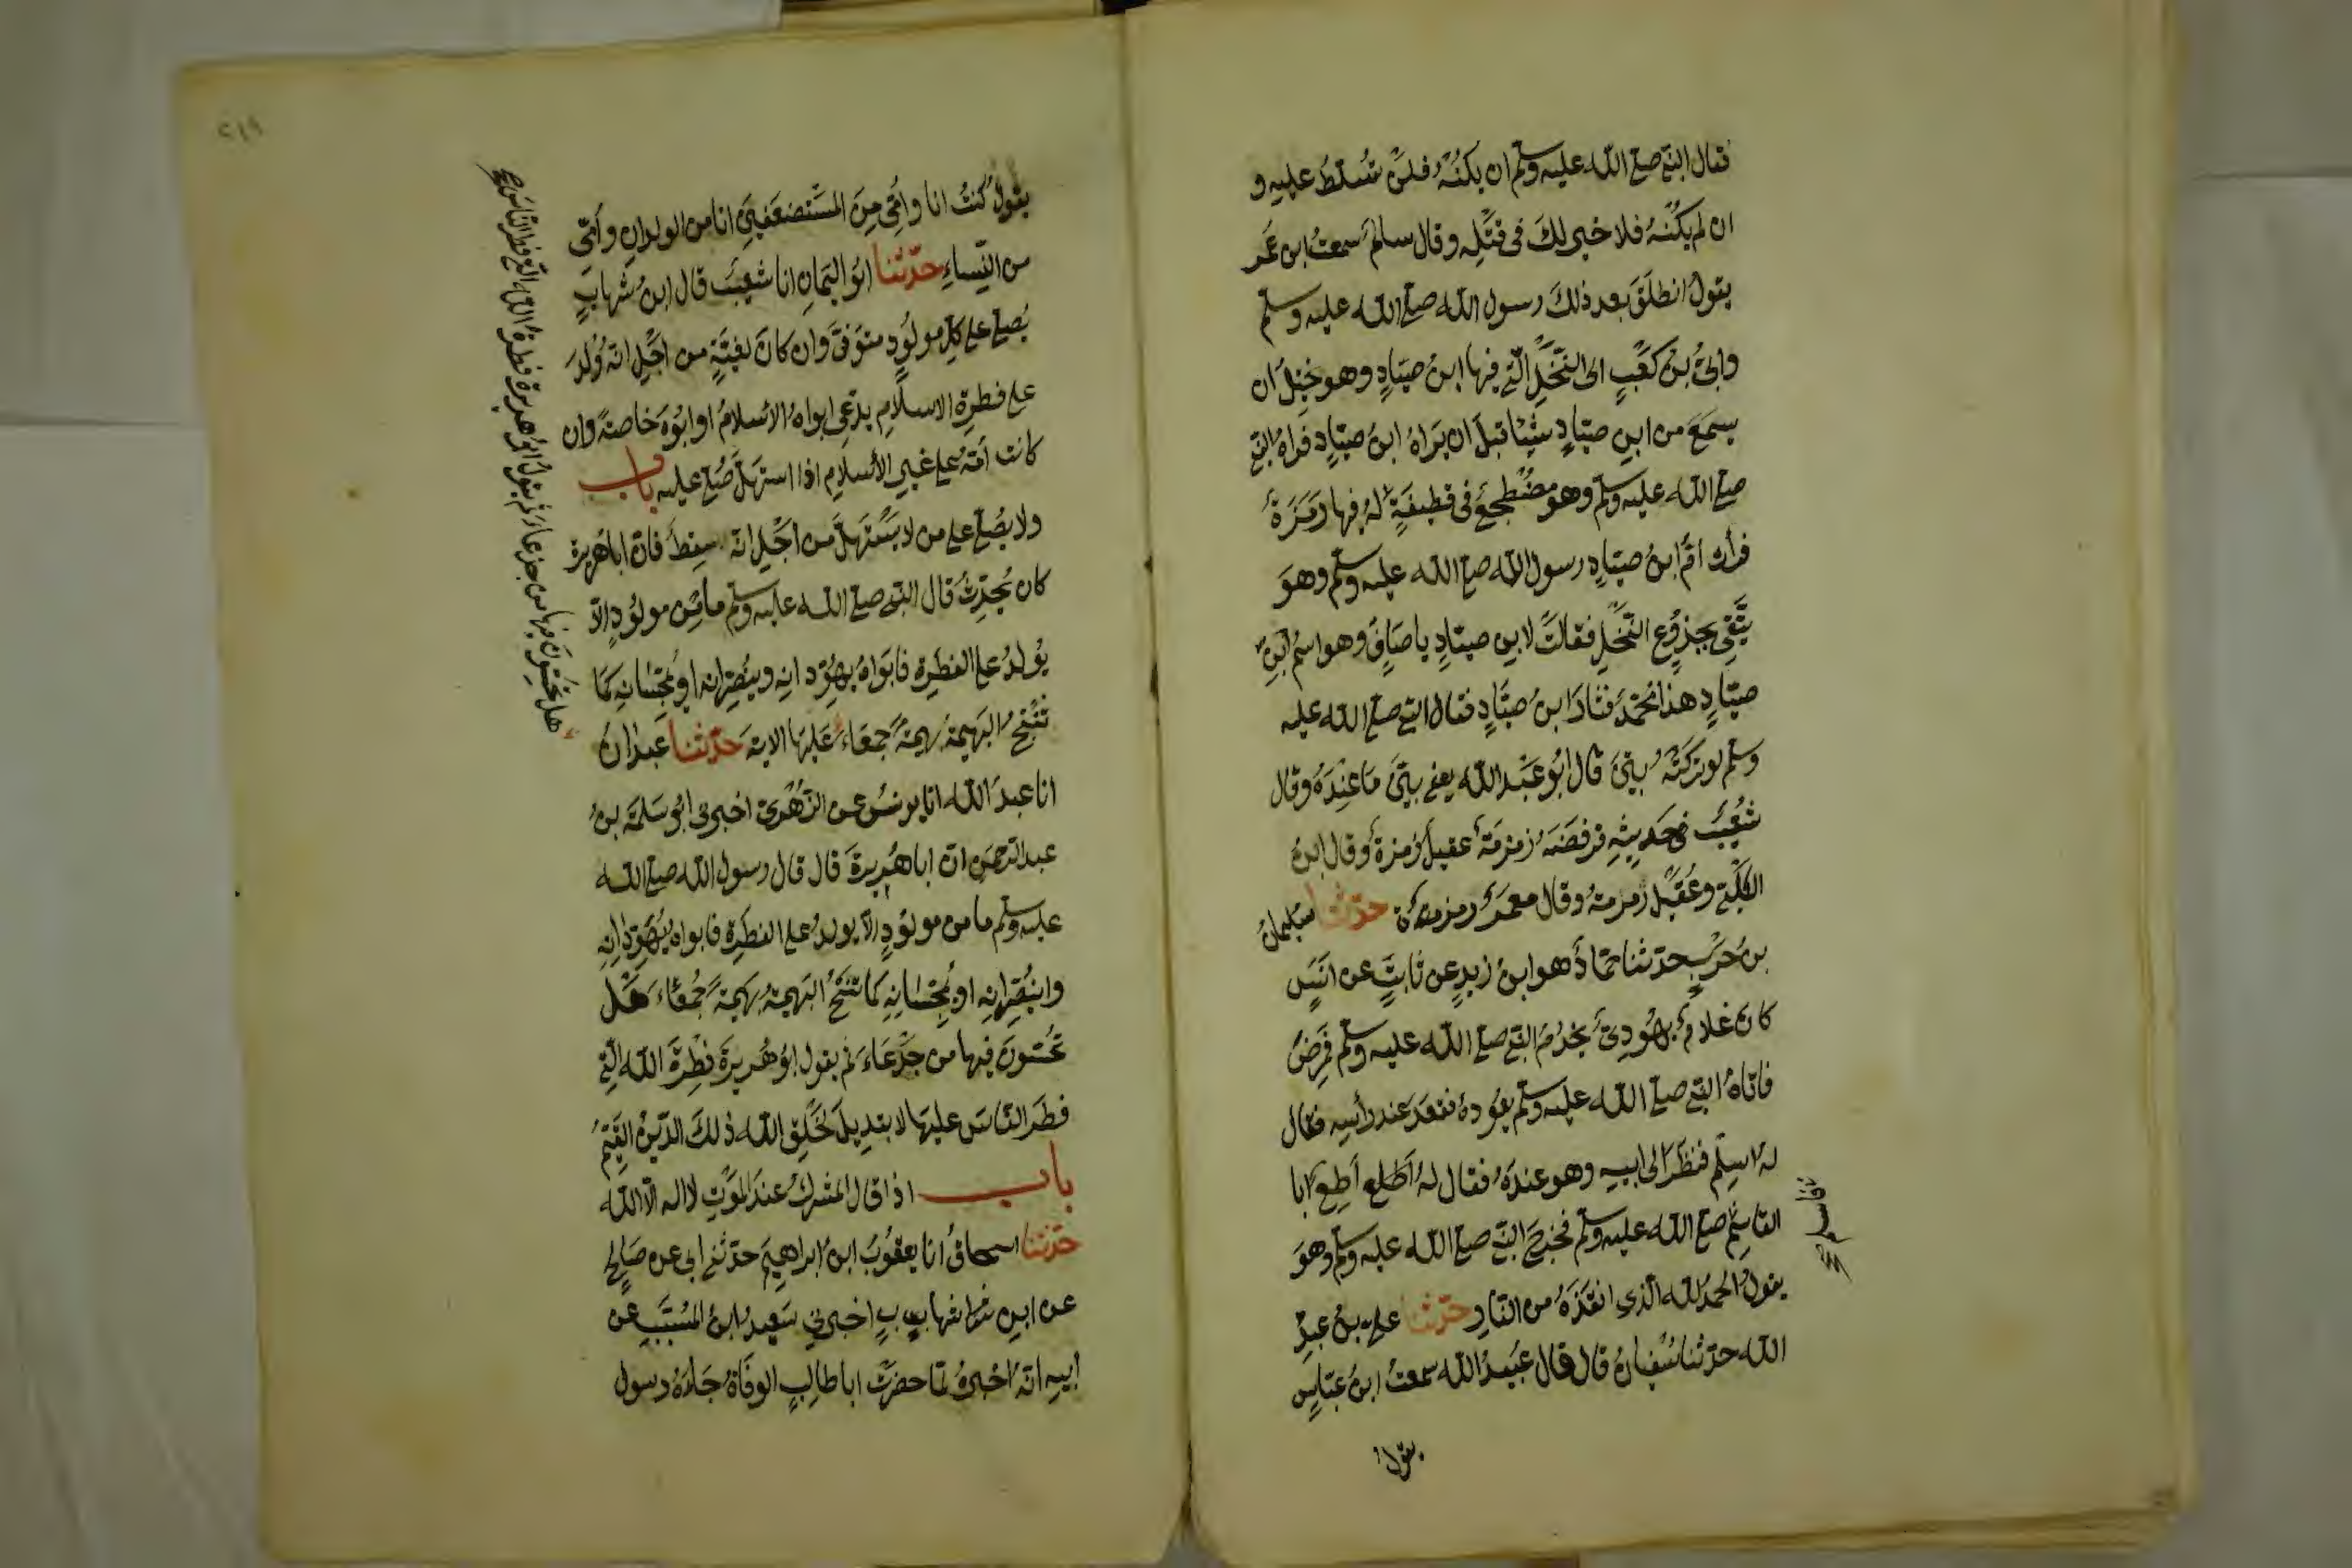 فقال النبي صلى الله عليه وسلم ان يكنه فلن تسلط عليه و
ان لم يكنه فلا خير لك في قتله وقال سالم سمعت ابن عمر
يقول انطلق بعد ذلك رسول الله صلى الله عليه وسلم
وابي بن كعب الى النخل التي فيها ابن صياد وهو يختل ان
يسمع من ابن صياد شيئا قبل ان يراه ابن صياد فراه النبي
صلى الله عليه وسلم وهو مضطجع في قطيفة له فيها رمزة
فرأت ام ابن صياد رسول الله صلى الله عليه وسلم وهو
يتقي بجذوع النخل فقالت لابن صياد يا صاف وهو اسم ابن
صياد هذا محمد فثار ابن صياد فقال النبي صلى الله عليه
وسلم لو تركته بين قال ابو عبد الله يعني بين ما عنده وقال
شعيب في حديثه فرفضه زمزمة عقيل رمزة وقال ابن
الكلبي وعقيل رمرمة وقال معمر رمزة حدثنا سليمان
بن حرب حدثنا حماد هو ابن زيد عن ثابت عن انس
كان غلام يهودي يخدم النبي صلى الله عليه وسلم فمرض
فاتاه النبي صلى الله عليه وسلم يعوده فقعد عند رأسه فقال
له اسلم فنظر الى ابيه وهو عنده فقال له اطلع اطع ابا
القاسم صلى الله عليه وسلم فخرج النبي صلى الله عليه وسلم وهو
يقول الحمد لله الذي انقذه من النار حدثنا علي بن عبد
الله حدثنا سفيان قال قال عبيد الله سمعت ابن عباس
يقول
فاسلم صح
٢١٩
يقول كنت انا وامي من المستضعفين انا من الولدان وامي
من النساء حدثنا ابو اليمان انا شعيب قال ابن شهاب
يصلى على كل مولود متوفى وان كان لغية من اجل انه ولد
على فطرة الاسلام يدعي ابواه الاسلام او ابوه خاصة وان
كانت امه على غير الاسلام اذا استهل صلي عليه باب
ولا يصلى على من لا يستهل من اجل انه سقط فان ابا هريرة
كان يحدث قال النبي صلى الله عليه وسلم ما من مولود الا
يولد على الفطرة فابواه يهودانه وينصرانه او يمجسانه كما
تنتج البهيمة بهيمة جمعاء عليها الاية حدثنا عبدان
انا عبد الله انا يونس عن الزهري اخبرني ابو سلمة بن
عبد الرحمن ان ابا هريرة قال قال رسول الله صلى الله
عليه وسلم ما من مولود الا يولد على الفطرة فابواه يهودانه
وينصرانه او يمجسانه كما تنتج البهيمة بهيمة جمعاء هل
تحسون فيها من جدعاء ثم يقول ابو هريرة فطرة الله التي
فطر الناس عليها لا تبديل لخلق الله ذلك الدين القيم
باب اذا قال المشرك عند الموت لا اله الا الله
حدثنا اسحاق انا يعقوب ابن ابراهيم حدثني ابي عن صالح
عن ابن شهاب اخبرني سعيد ابن المسيب عن
ابيه انه اخبره لما حضرت ابا طالب الوفاة جاءه رسول
هل تحسون فيها من جدعاء ثم يقول ابو هريرة فطرة الله التي فطر الناس صح